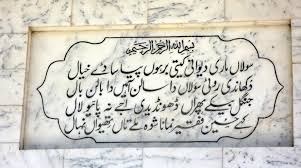 بسم اللہ الرحمن الرحیم
سولاں ماری دیوانی کیتی برہوں پیا ساڈے خیال
دکھاں دی روٹی سولاں دا سالن آہیں دا بالن بال
جنگل بیلے پھراں ڈھونڈیندی اجے نہ پائیو لال
کہے حسین فقیر نمانا شوہ ملے تاں تھیواں نہال